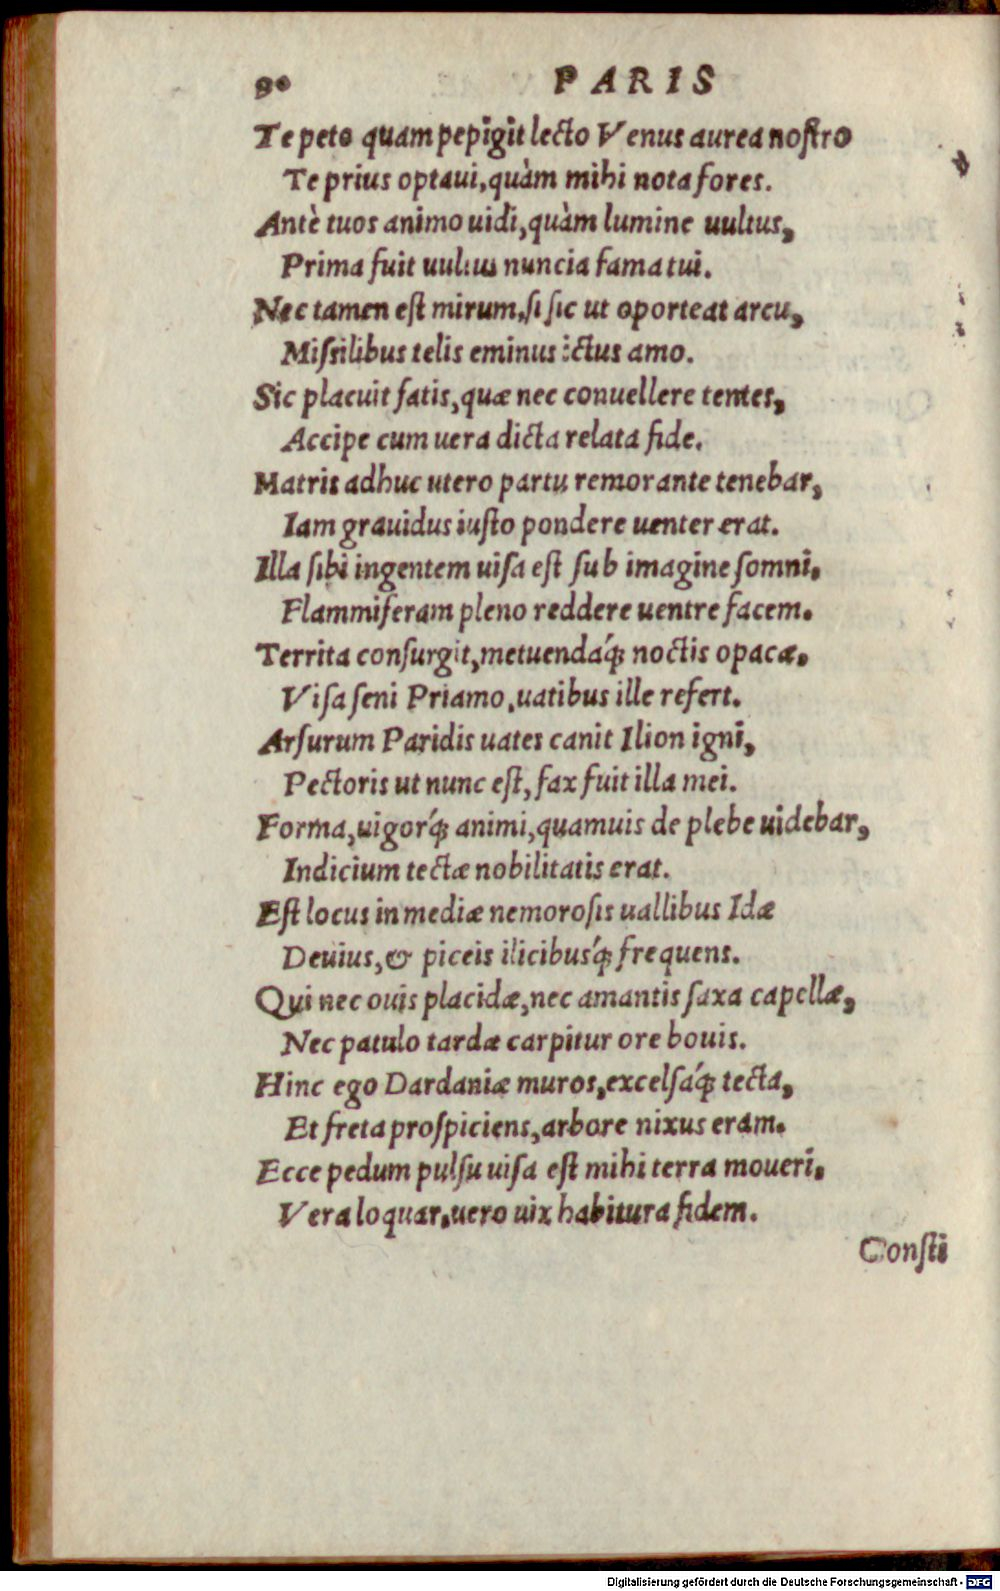 90 PARIS
Te peto quam pepigit lecto Venus aurea noſtro
Te prius optaui, quàm mihi nota fores.
Antè tuos animo uidi, quàm lumine uultus,
Prima fuit uultus nuncia fama tui.
Nec tamen eſt mirum, ſi ſic ut oporteat arcu,
Miſsilibus telis eminus ictus amo.
Sic placuit fatis, quæ nec conuellere tentes,
Accipe cum uera dicta relata fide.
Matris adhuc utero partu remorante tenebar,
Iam grauidus iuſto pondere uenter erat.
Illa ſibi ingentem uiſa eſt ſub imagine ſomni,
Flammiferam pleno reddere uentre facem.
Territa conſurgit, metuendáq; noctis opacæ,
Viſa ſeni Priamo, uatibus ille refert.
Arſurum Paridis uates canit Ilion igni,
Pectoris ut nunc eſt, fax fuit illa mei.
Forma, uigorq́; animi, quamuis de plebe uidebar,
Indicium tectæ nobilitatis erat.
Eſt locus in mediæ nemoroſis uallibus Idæ
Deuius, & piceis ilicibusq́; frequens.
Qui nec ouis placidæ, nec amantis ſaxa capellæ,
Nec patulo tardæ carpitur ore bouis.
Hinc ego Dardaniæ muros, excelſáq; tecta,
Et freta proſpiciens, arbore nixus eram.
Ecce pedum pulſu uiſa eſt mihi terra moueri,
Vera loquar, uero uix habitura fidem.
Conſti
Digitalisierung gefördert durch die Deutsche Forschungsgemeinschaft - DFG